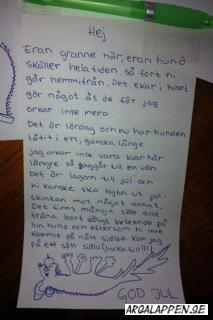 Hej
Eran granne här, eran hund
skäller hela tiden, så fort ni
går hemifrån. Det ekar i huset
gör något åt de för jag
orkar inte mera
Det är lördag och nu har hunden
låtit i ett, ganska länge
jag orkar inte vara kvar här
längre så går till en vän.
Det är lagom till jul och
ni kanske ska byta ut jul-
skinkan mot något annat.
Det finns många sätt att
träna bort dåligt beteende på
sin hund och eftersom ni inte
kommit på nått själva. Kom jag
på ett sätt själv (lycka till!!!)
GOD JUL
ARGALAPPEN.SE